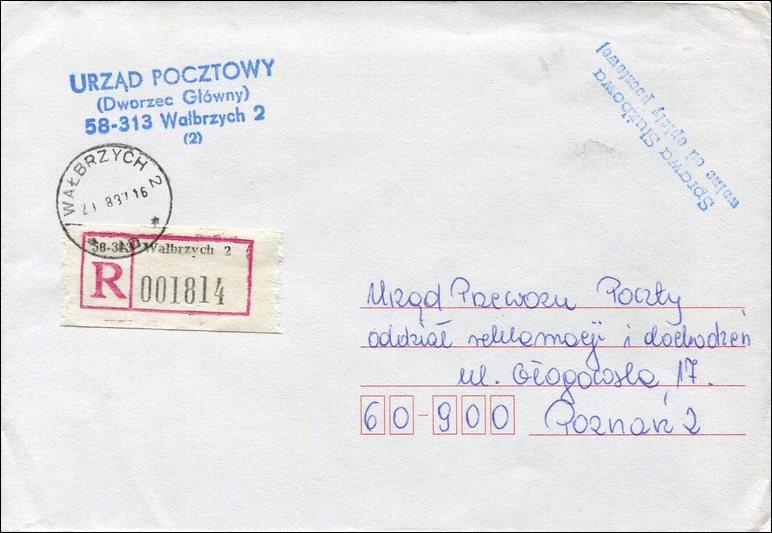 URZĄD POCZTOWY
(Dworzec Główny)
58-313 Wałbrzych 2
(2)
Sprawa Służbowa
wolne od opłaty pocztowej
WAŁBRZYCH 2
58-313 Wałbrzych 2
R 001814
Urząd Przewozu Poczty
oddział reklamacji i dochodzeń
ul. Głogowska 17.
60-900 Poznań 2